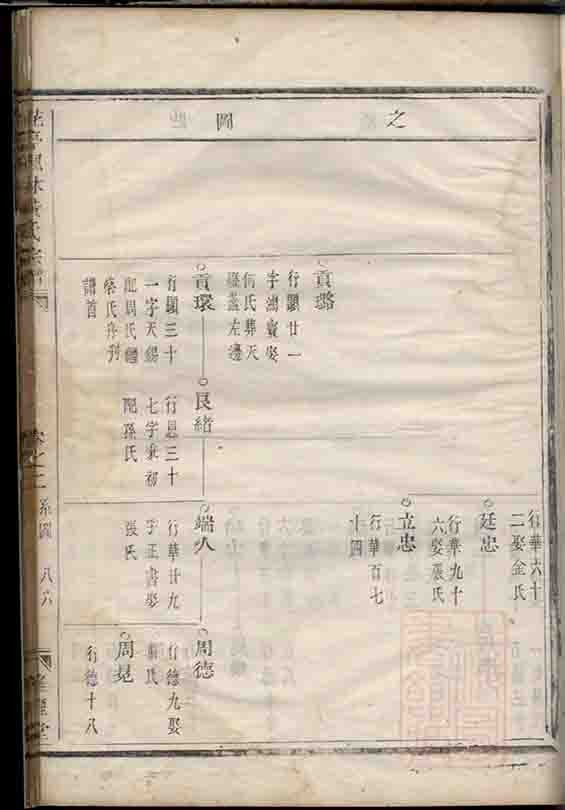 之
圖
行華六十
二娶金氏
廷忠
行華九十
六娶張氏
立忠
行華百七
十四
貢璐
行顯廿一
字鴻賓娶
何氏葬天
燈盞左邊
貢環
行顯三十
一字天錫
配周氏繼
蔡氏序列
譜首
良緒
行昆三十
七字秉初
配孫氏
端火
行華廿九
字正書娶
張氏
周德
行德九娶
氏
周晃
行德十八
氏宗譜
卷之二
系圖
八六
堂